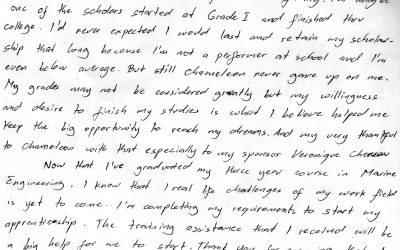 one of the scholars started at Grade I and finished thru
college. I'd never expected I would last and retain my scholar-
ship that long because I'm not a performer at school and I'm
even below average. But still Chameleon never gave up on me.
My grades may not be considered greatly but my willingness
and desire to finish my studies is what I believe helped me
keep the big opportunity to reach my dreams. And my very thankful
to Chameleon with that especially to my sponsor Veronique
Now that I've graduated my three year course in Marine
Engineering, I know that I real life challenges of my work field
is yet to come. I'm completing my requirements to start my
apprenticeship. The training assistance that I received will be
a big help for me to start. Thank you